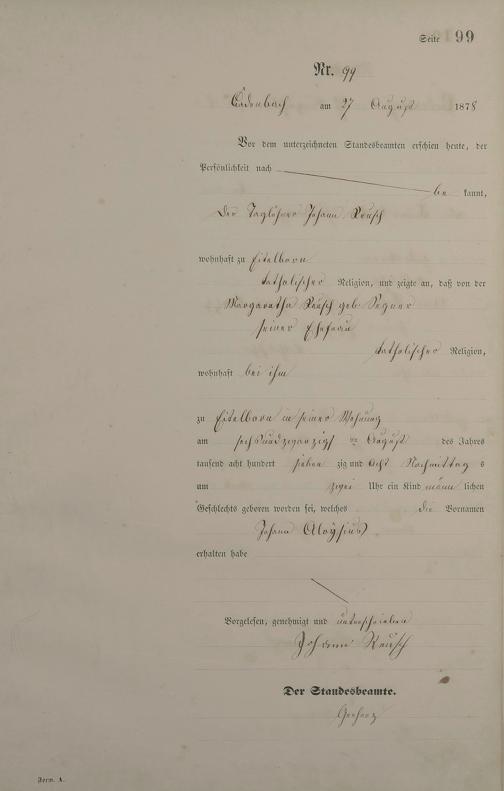 Seite 99
Nr. 99
Cadenbach am 27 August 1878
Vor dem unterzeichneten Standesbeamten erschien heute, der
Persönlichkeit nach
be kannt,
der Taglöhner Johann Reusch
wohnhaft zu Eitelborn
katholischer Religion, und zeigte an, daß von der
Margaretha Reusch geb.
seiner Ehefrau
katholischer Religion,
wohnhaft bei ihm
zu Eitelborn in seiner Wohnung
am sechsundzwanzigsten August des Jahres
tausend acht hundert sieben zig und acht Nachmittag s
um zwei Uhr ein Kind männ lichen
Geschlechts geboren worden sei, welches die Vornamen
Johann Aloysius
erhalten habe
Vorgelesen, genehmigt und unterschrieben
Johann Reusch
Der Standesbeamte.
Form. A.